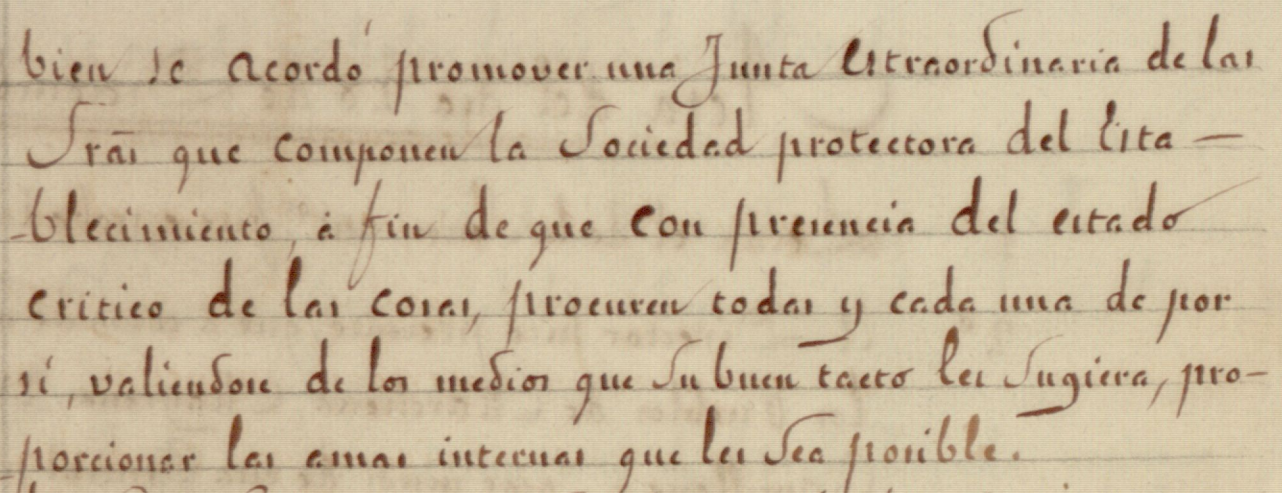 bien se acordó promover una Junta estraordinaria de las
Sras que componen la Sociedad protectora del Esta-
-blecimiento, á fin de que con presencia del estado
critico de las cosas, procuren todas y cada una de por
sí, valiendose de los medios que su buen tacto les sugiera, pro-
porcionar las amas internas que les sea posible.